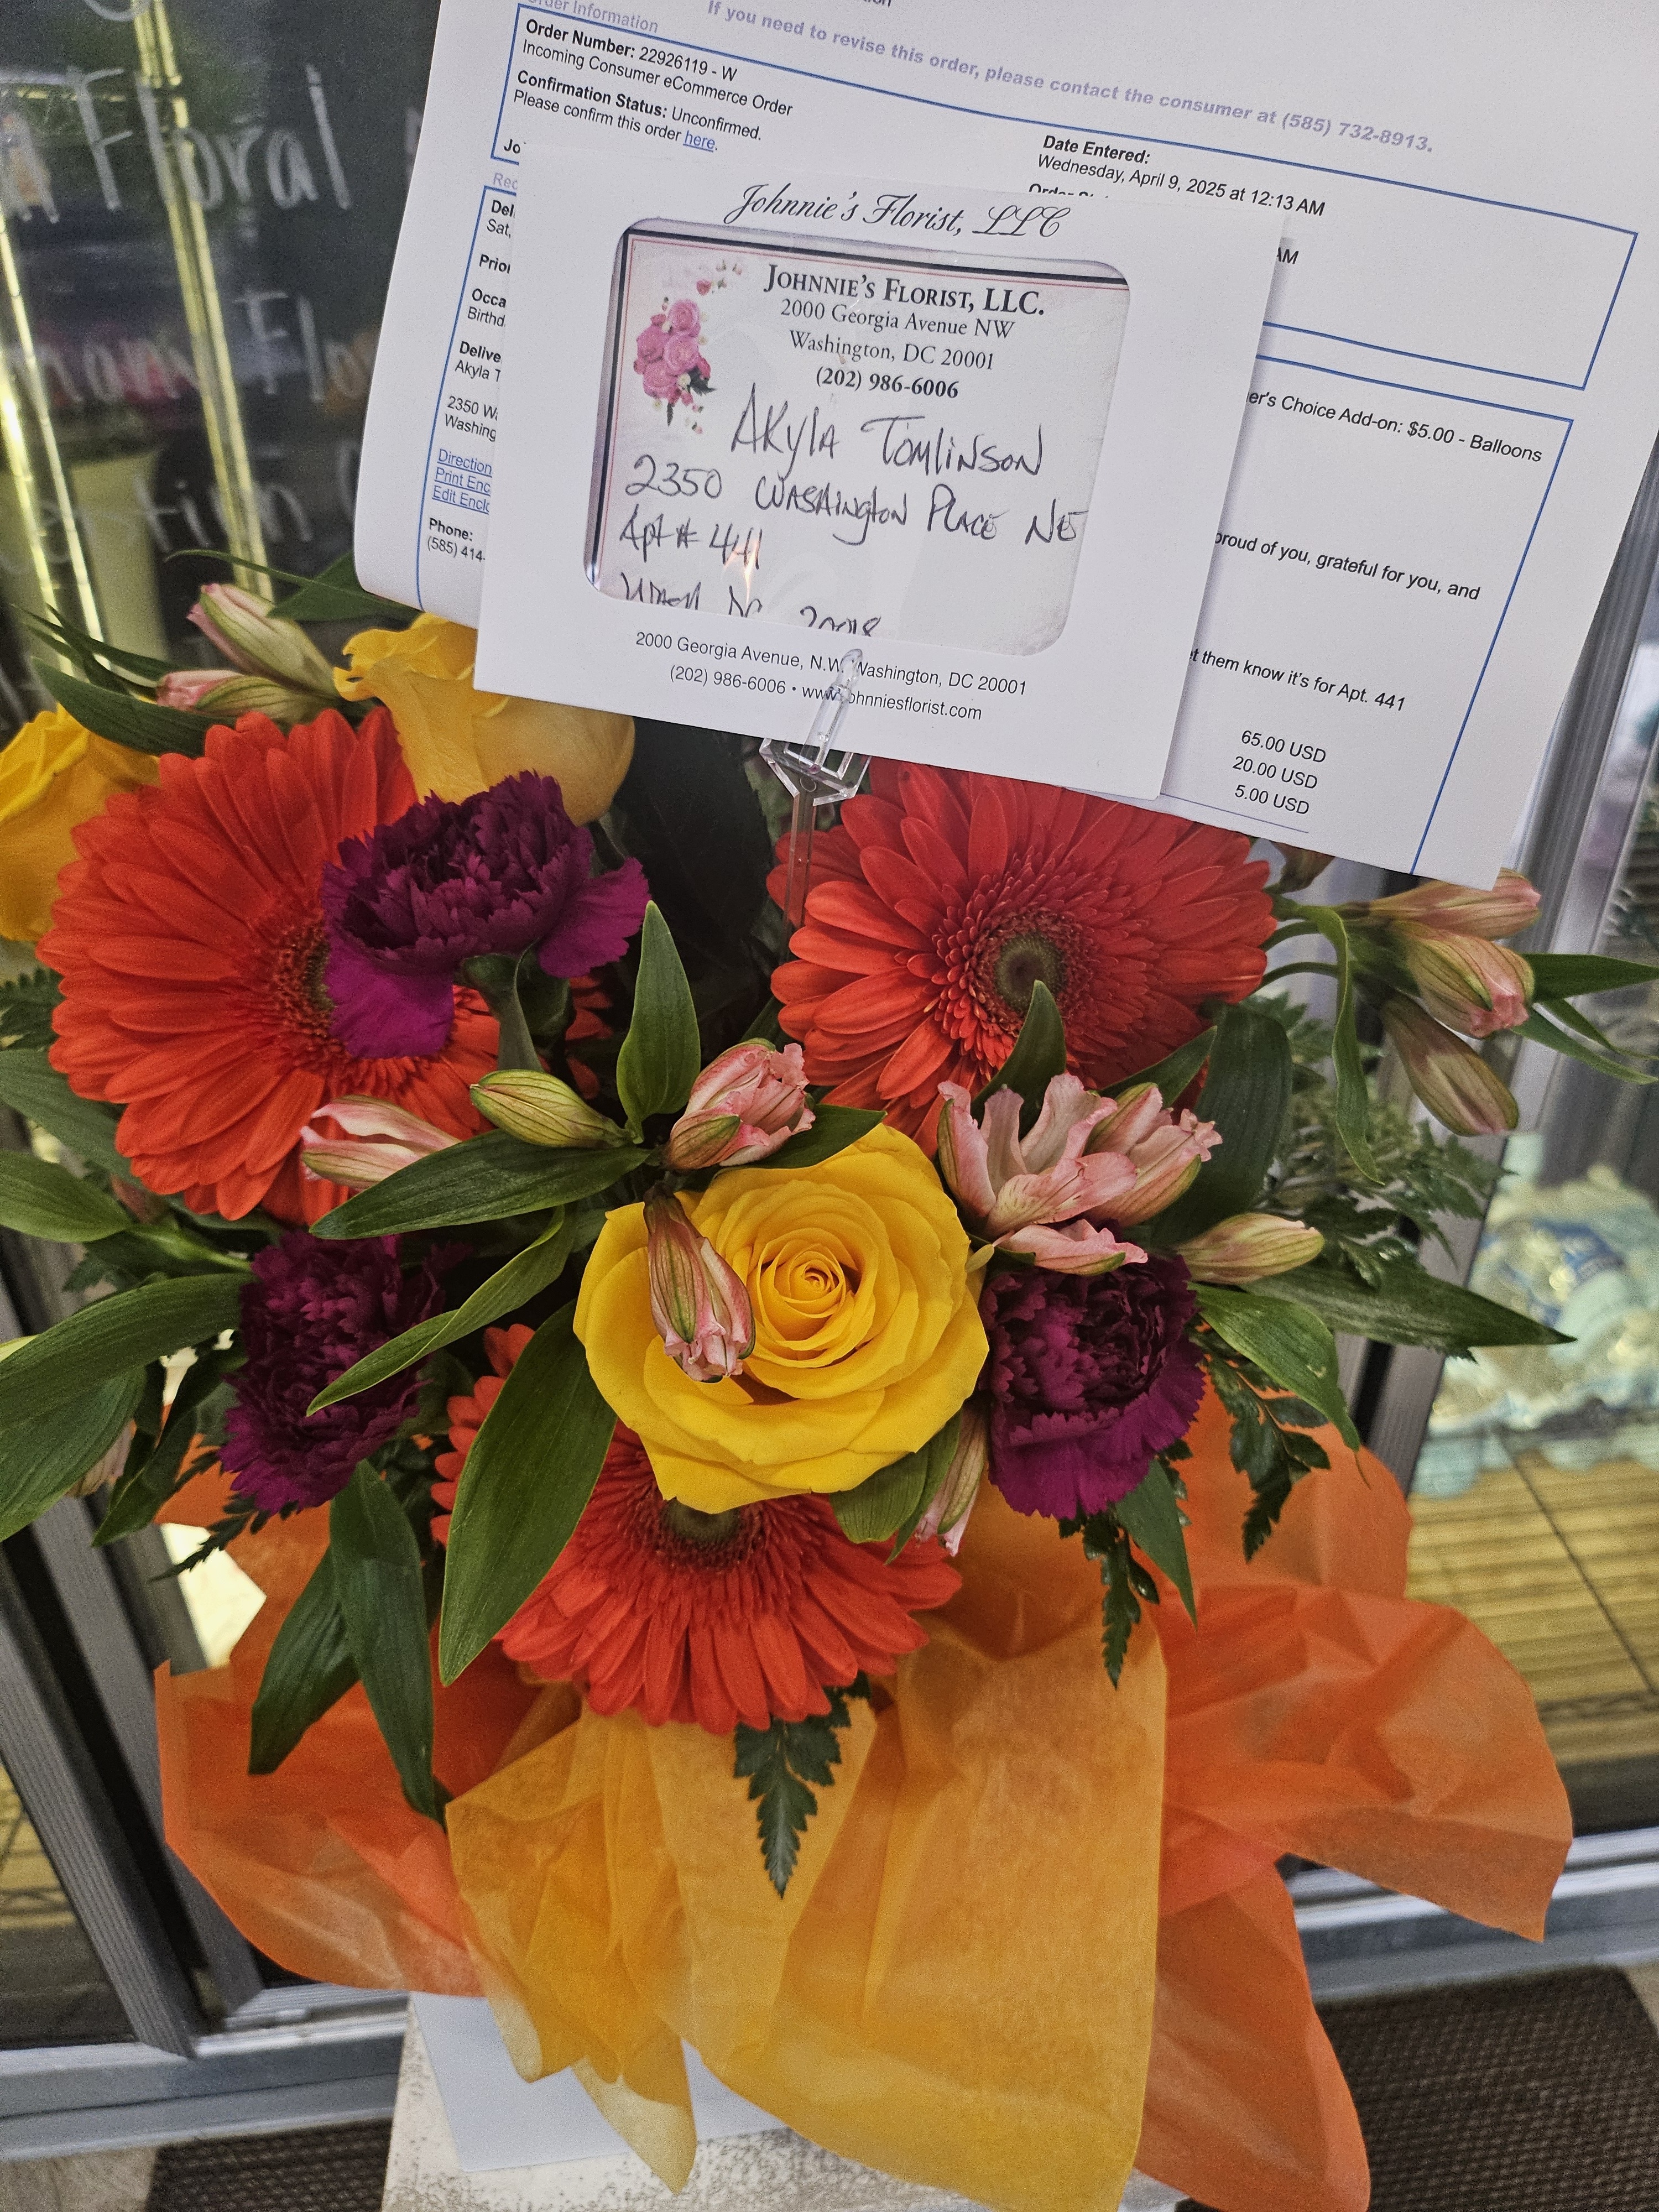 If you need to revise this order, please contact the consumer at (585) 732-8913.
Order Information
Order Number: 22926119 - W
Incoming Consumer eCommerce Order
Confirmation Status: Unconfirmed.
Please confirm this order here.
Date Entered:
Wednesday, April 9, 2025 at 12:13 AM
AM
Jo
Rec
Del
Sat,
Prior
Occa
Birthd
Delive
Akyla T
2350 Wa
Washing
Direction
Print Enc
Edit Enclo
Phone:
(585) 414-
er's Choice Add-on: $5.00 - Balloons
proud of you, grateful for you, and
et them know it's for Apt. 441
65.00 USD
20.00 USD
5.00 USD
Johnnie's Florist, LLC
JOHNNIE'S FLORIST, LLC.
2000 Georgia Avenue NW
Washington, DC 20001
(202) 986-6006
AKylA TOMliNSON
2350 WASAington PlACE NE
Apt # 441
WASH DC 20018
2000 Georgia Avenue, N.W. Washington, DC 20001
(202) 986-6006 • www.johnniesflorist.com
Floral
Flo